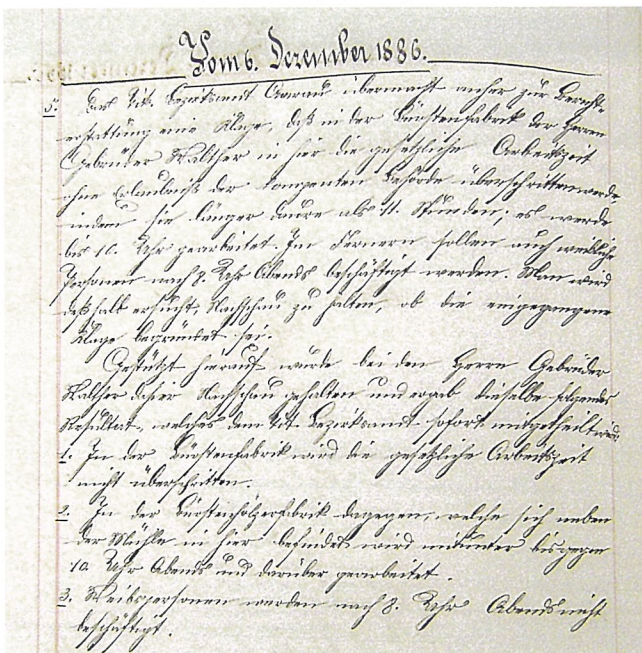 Vom 6. Dezember 1886.
5. Das Tit. Bezirksamt Aarau übermacht anher zur Bericht-
erstattung eine Klage, daß in der Bürstenfabrik der Herren
Gebrüder Walther in hier die gesetzliche Arbeitszeit
ohne Erlaubniß der kompetenten Behörde überschritten werde,
indem sie länger daure als 11. Stunden; es werde
bis 10. Uhr gearbeitet. Im Fernern sollen auch weibliche
Personen nach 8. Uhr Abends beschäftigt werden. Man wird
deßhalb ersucht, Nachschau zu halten, ob die eingegangene
Klage begründet sei.
Gestützt hierauf wurde bei den Herrn Gebrüder
Walther dahier Nachschau gehalten und ergab dieselbe folgendes
Resultat, welches dem Tit. Bezirksamt sofort mitgetheilt wird:
1. In der Bürstenfabrik wird die gesetzliche Arbeitszeit
nicht überschritten.
2. In der Bürstenhölzerfabrik dagegen, welche sich neben
der Mühle in hier befindet wird mitunter bis gegen
10 Uhr Abends und darüber gearbeitet.
3. Weibspersonen werden nach 8. Uhr Abends nicht
beschäftigt.